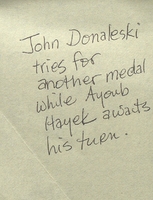 John Donaleski
tries for
another medal
while Ayoub
Hayek awaits
his turn.